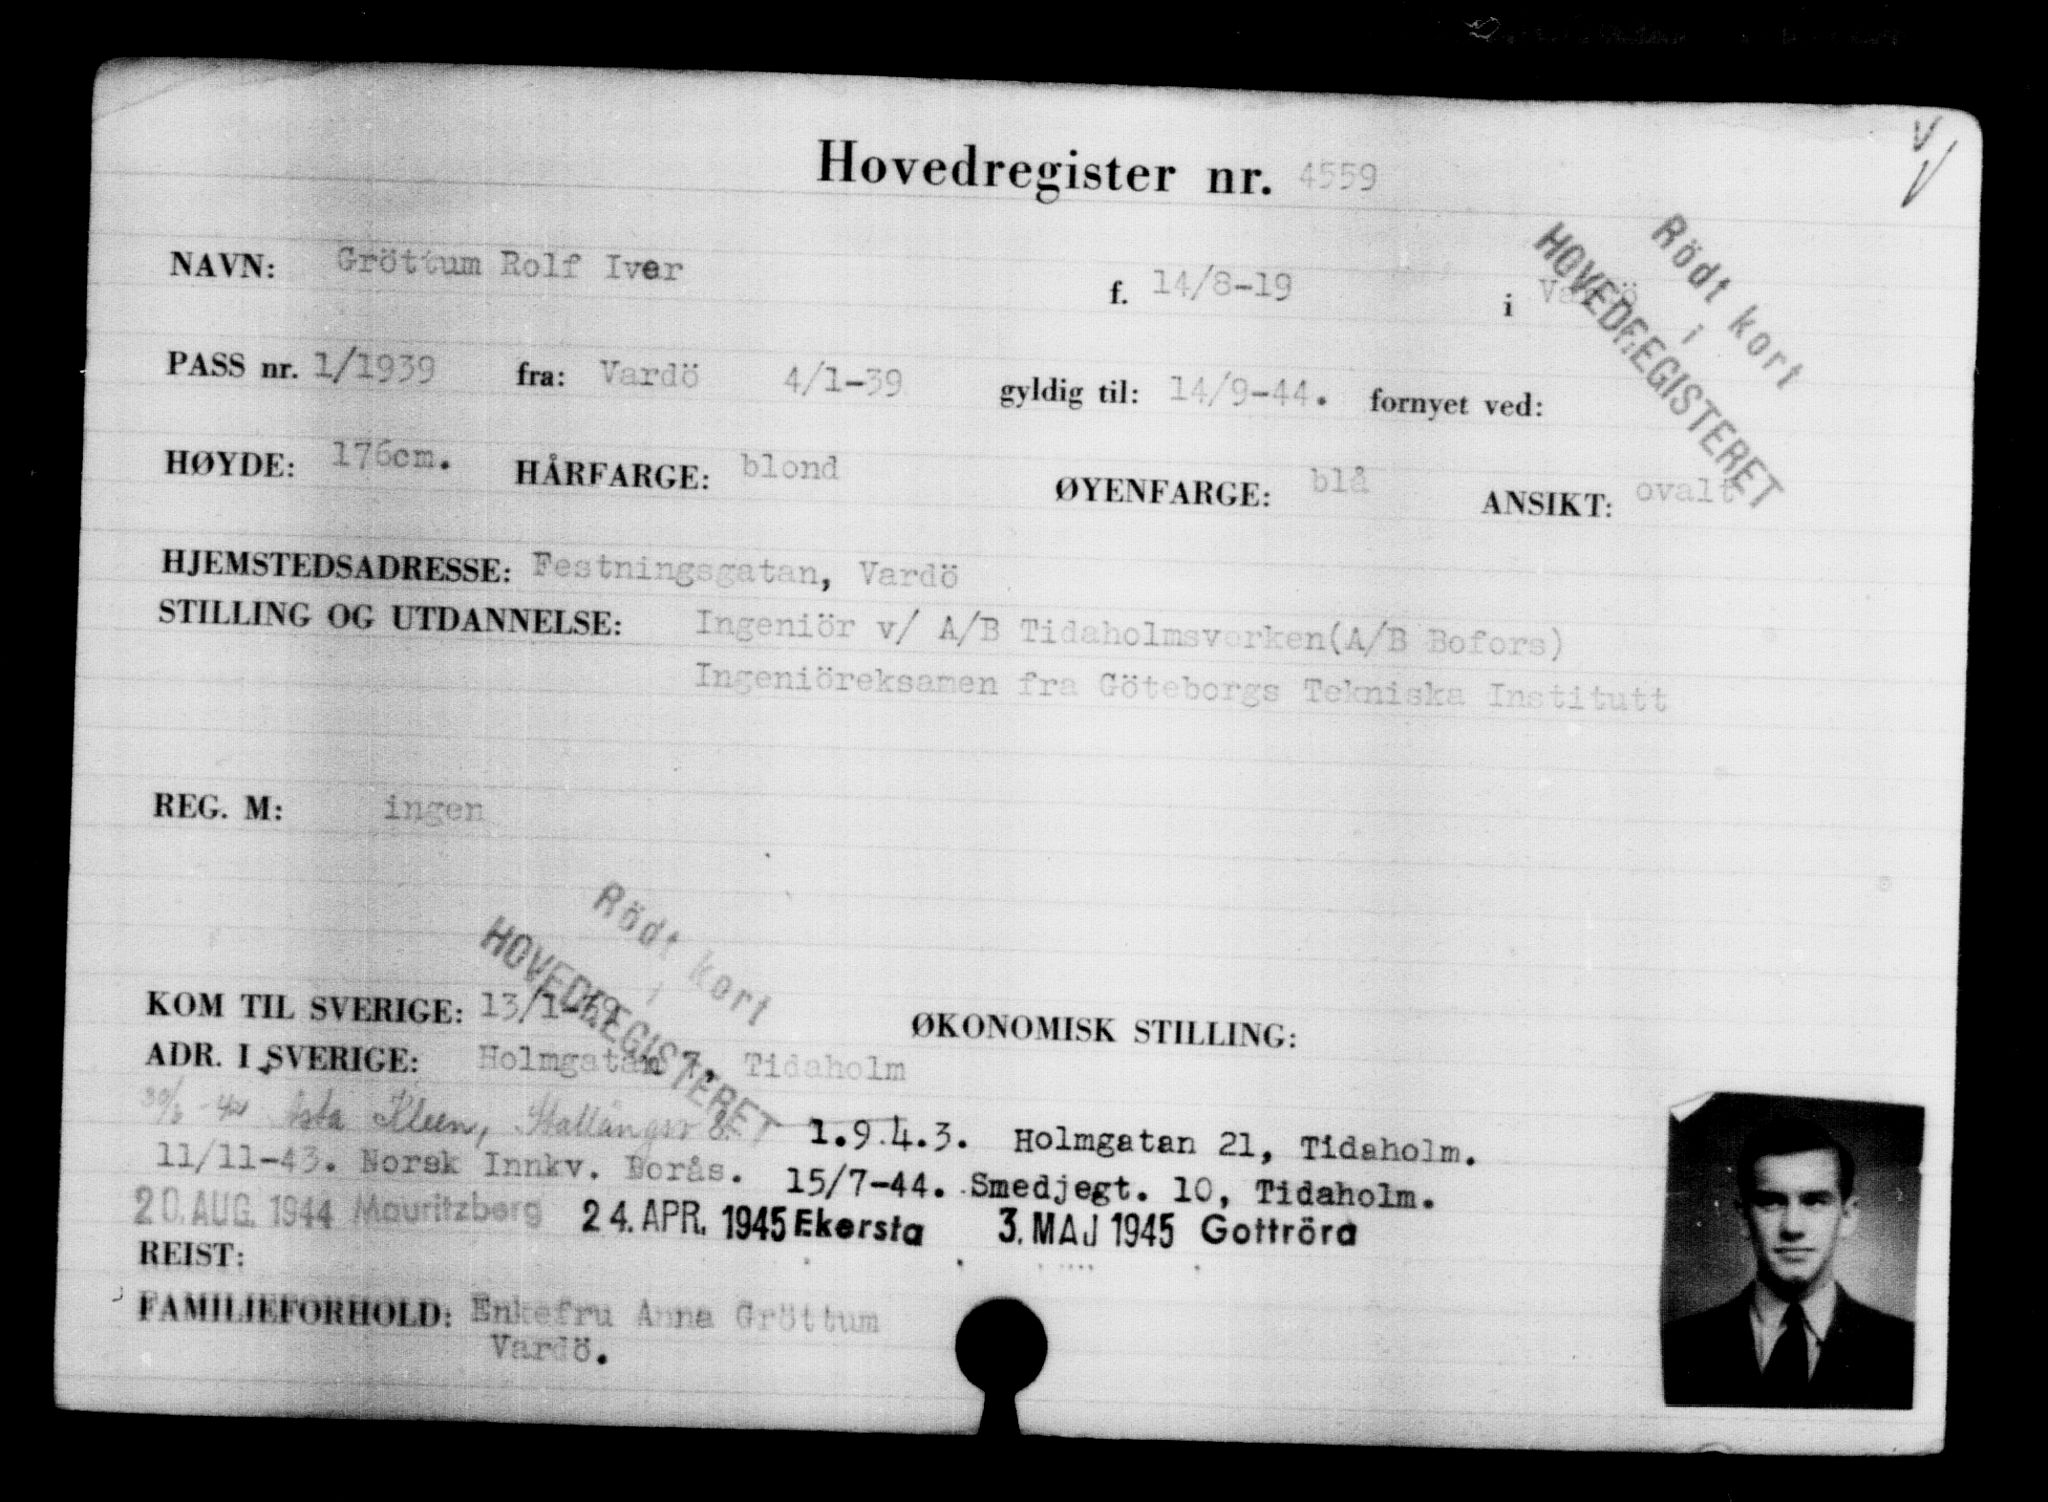 Hovedregister nr. 4559
Rödt kort
i
HOVEDREGISTERET
NAVN: Gröttum Rolf Iver f. 14/8-19 i Vardö
PASS nr. 1/1939 fra: Vardö 4/1-39 gyldig til: 14/9-44. fornyet ved:
HØYDE: 176cm. HÅRFARGE: blond ØYENFARGE: blå ANSIKT: ovalt
HJEMSTEDSADRESSE: Festningsgatan, Vardö
STILLING OG UTDANNELSE: Ingeniör v/ A/B Tidaholmsverken(A/B Bofors)
Ingeniöreksamen fra Göteborgs Tekniska Institutt
REG. M: ingen
Rödt kort
i
HOVEDREGISTERET
KOM TIL SVERIGE: 13/1-39 ØKONOMISK STILLING:
ADR. I SVERIGE: Holmgatan 7, Tidaholm
Kleen, 1.9.4.3. Holmgatan 21, Tidaholm.
11/11-43. Norsk Innkv. Borås. 15/7-44. Smedjegt. 10, Tidaholm.
20. AUG. 1944 Mauritzberg 24. APR. 1945 Ekersta 3. MAJ 1945 Gottröra
REIST:
FAMILIEFORHOLD: Enkefru Anna Gröttum
Vardö.